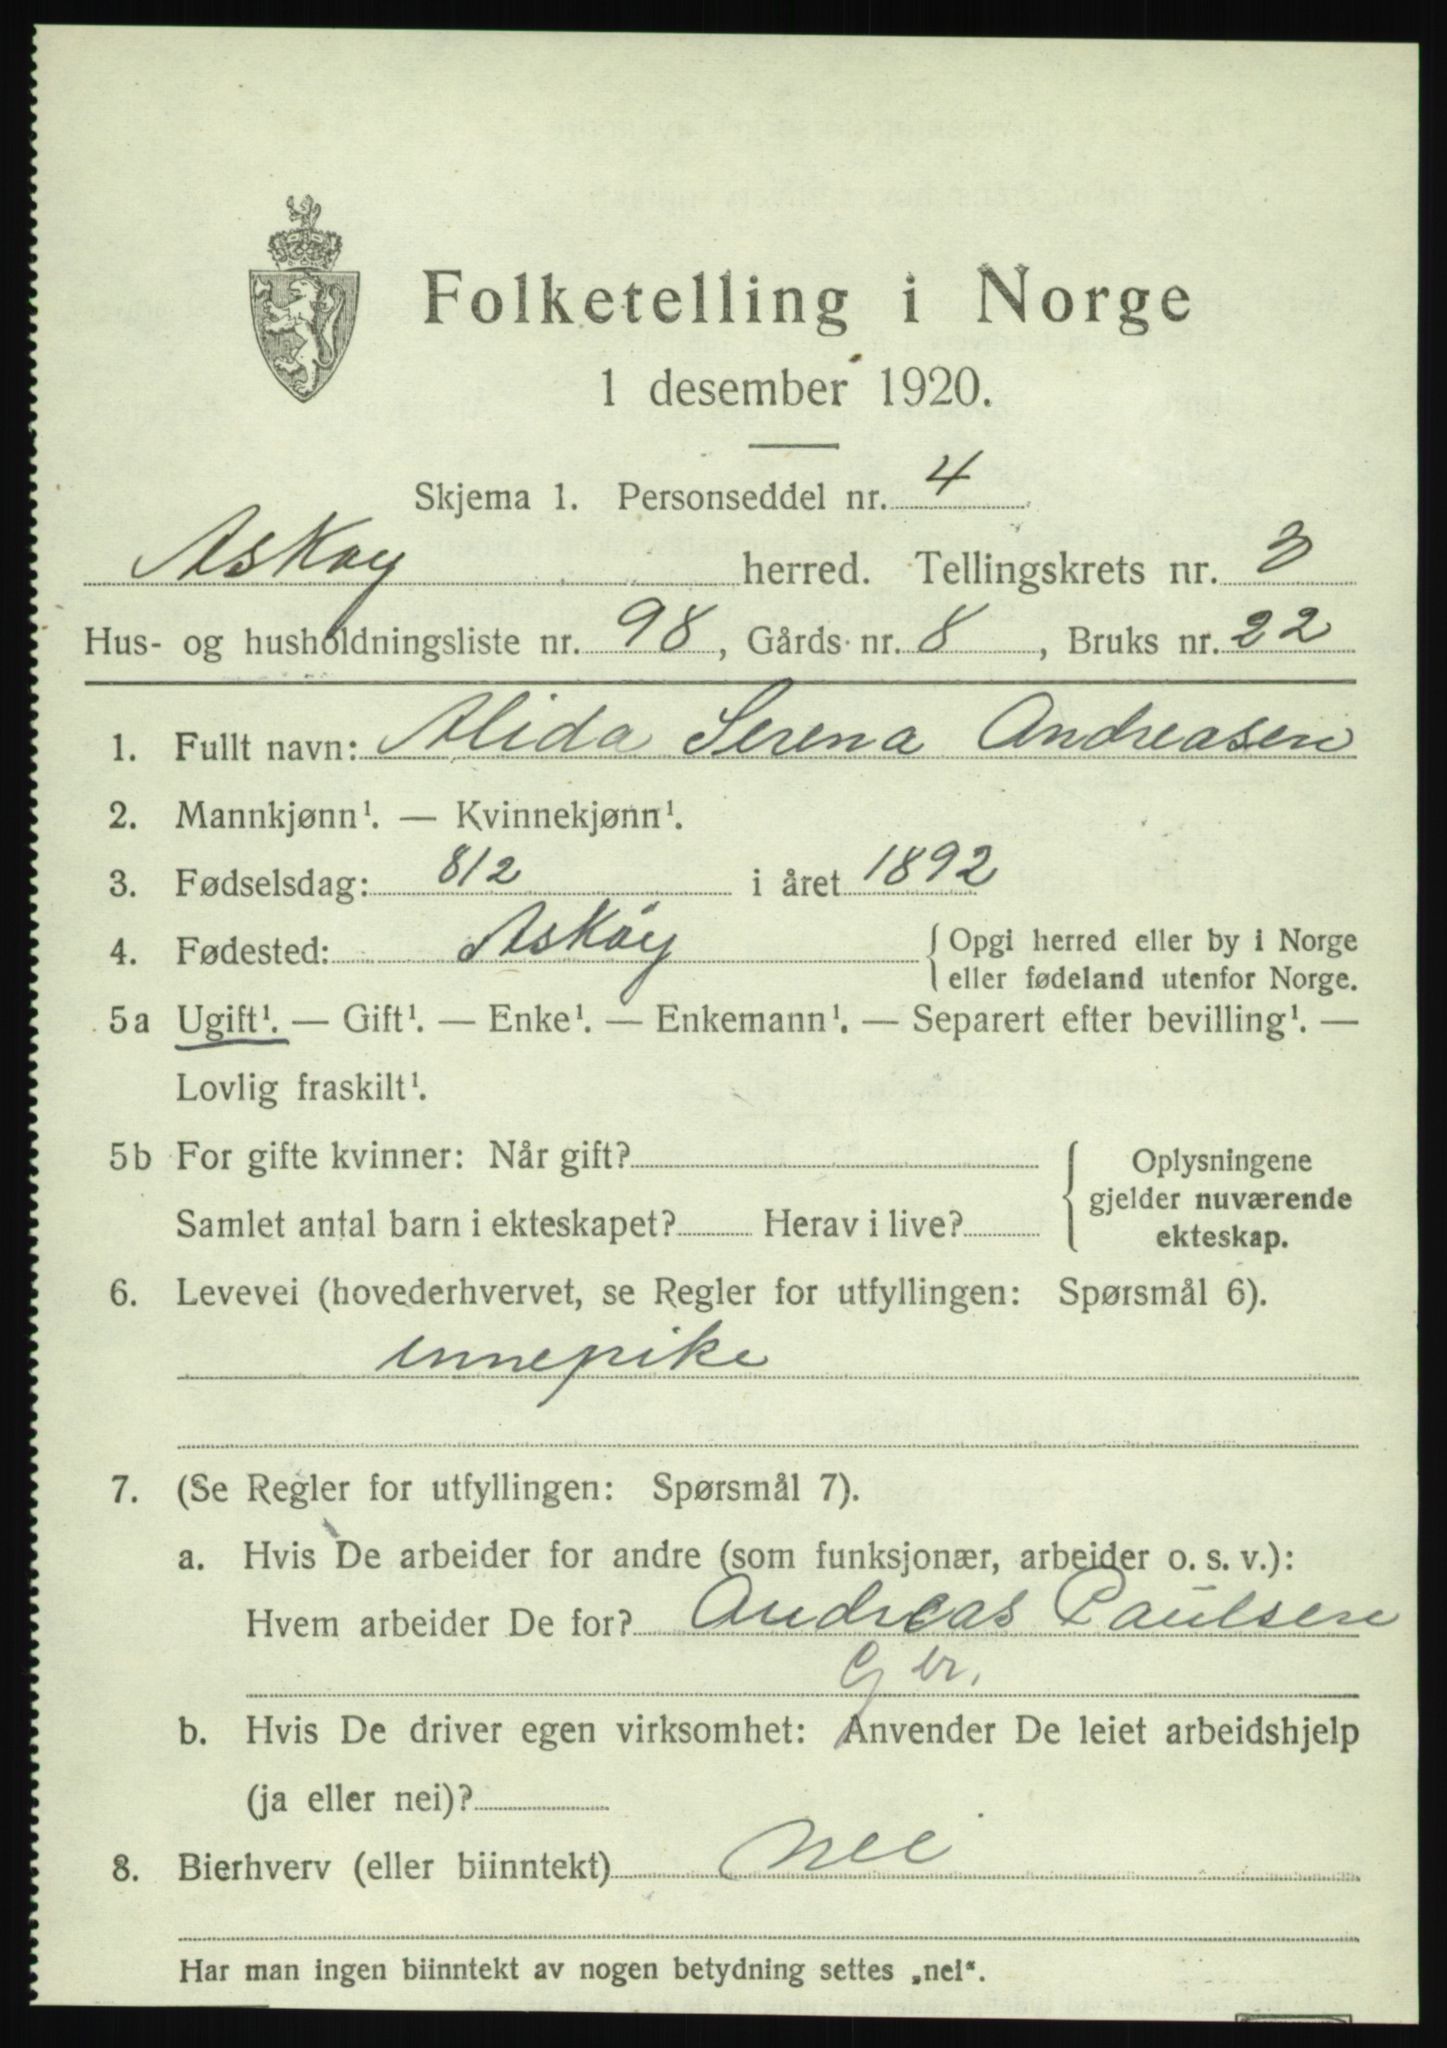 Folketelling i Norge
1 desember 1920.
Skjema 1. Personseddel nr. 4
Askøy herred. Tellingskrets nr. 3
Hus- og husholdningsliste nr. 98, Gårds nr. 8, Bruks nr. 22
1. Fullt navn: Alida Serena Andreasen
2. Mannkjønn¹. — Kvinnekjønn¹.
3. Fødselsdag: 8/2 i året 1892
4. Fødested: Askøy { Opgi herred eller by i Norge
eller fødeland utenfor Norge.
5a Ugift¹. — Gift¹. — Enke¹. — Enkemann¹. — Separert efter bevilling¹. —
Lovlig fraskilt¹.
5b For gifte kvinner: Når gift? { Oplysningene
gjelder nuværende
Samlet antal barn i ekteskapet? Herav i live?
ekteskap.
6. Levevei (hovederhvervet, se Regler for utfyllingen: Spørsmål 6).
innepike
7. (Se Regler for utfyllingen: Spørsmål 7).
a. Hvis De arbeider for andre (som funksjonær, arbeider o. s. v.):
Hvem arbeider De for? Andreas Paulsen
b. Hvis De driver egen virksomhet: Anvender De leiet arbeidshjelp
(ja eller nei)?
8. Bierhverv (eller biinntekt) nei
Har man ingen biinntekt av nogen betydning settes „nei“.